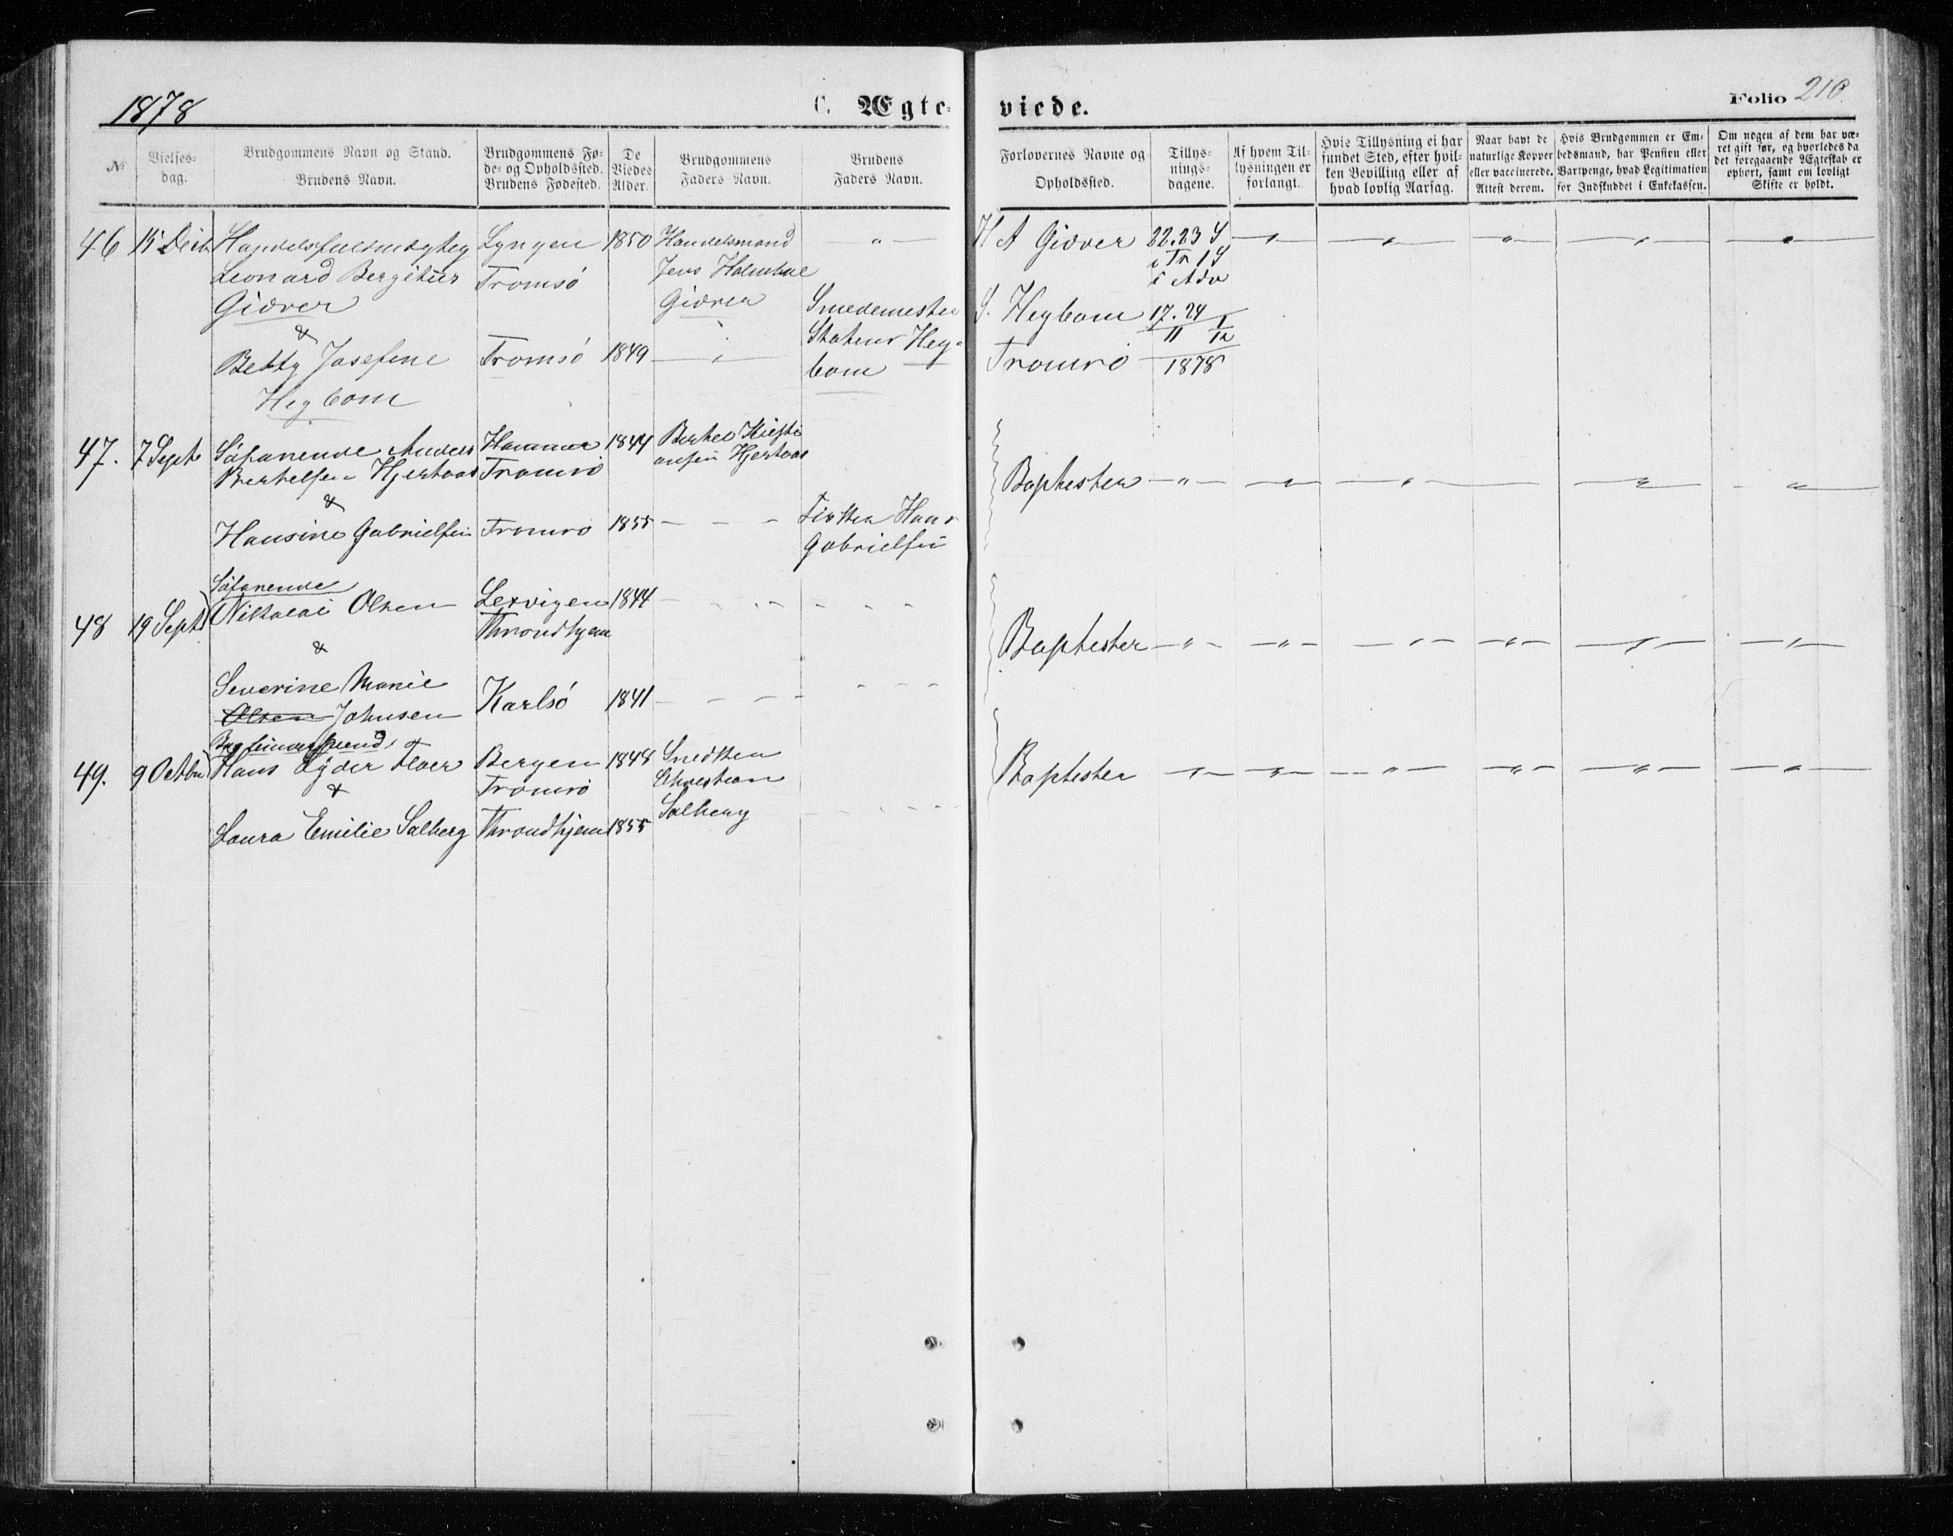 1878
C. Ægte-
viede.
Folio 210.
№
Vielses-
dag.
Brudgommens Navn og Stand.
Brudens Navn.
Brudgommens Fø-
de- og Opholdssted.
Brudens Fødested.
De
Viedes
Alder.
Brudgommens
Faders Navn.
Brudens
Faders Navn.
Forlovernes Navne og
Opholdssted.
Tillys-
nings-
dagene.
Af hvem Til-
lysningen er
forlangt.
Hvis Tillysning ei har
fundet Sted, efter hvil-
ken Bevilling eller af
hvad lovlig Aarsag.
Naar havt de
naturlige Kopper
eller vaccinerede.
Attest derom.
Hvis Brudgommen er Em-
bedsmand, har Pension eller
Vartpenge, hvad Legitimation
for Indskuddet i Enkekassen.
Om nogen af dem har væ-
ret gift før, og hvorledes da
det foregaaende Ægteskab er
ophørt, samt om lovligt
Skifte er holdt.
46
15 Decb
Handelsfuldmægtig
Leonard Bergitus
Giæver
&
Betty Josefine
Hegbom
Lyngen
Tromsö
Tromsö
1850
1849
Handelsmand
Jens Holmboe
Giæver
Smedemester
Heg-
bom
H A Giæver
S. Hegbom
Tromsö
22. 23 S
e Tr 1 S
i Adv
17. 24 1
11 12
1878
47.
7 Septb
Söfarende Anders
Bertelsen Hjertaas
&
Hansine Gabrielsen
Hammer
Tromsö
Tromsö
1844
1855
Bertel Kristi
ansen Hjertaas
Hans
Gabrielsen
Baptister
48
19 Septb
Söfarende
Nikolai Olsen
&
Severine Marie
Olsen Johnsen
Lexvigen
Throndhjem
Karlsö
1844
1841
Baptister
49.
9 Octbr
Hans Lyder Floer
&
Laura Emilie Salberg
Bergen
Tromsö
Throndhjem
1848
1855
Christian
Salberg
Baptister